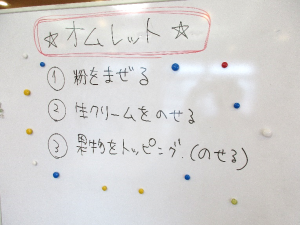 ☆オムレット☆
① 粉をまぜる
② 生クリームをのせる
③ 果物をトッピング.(のせる)